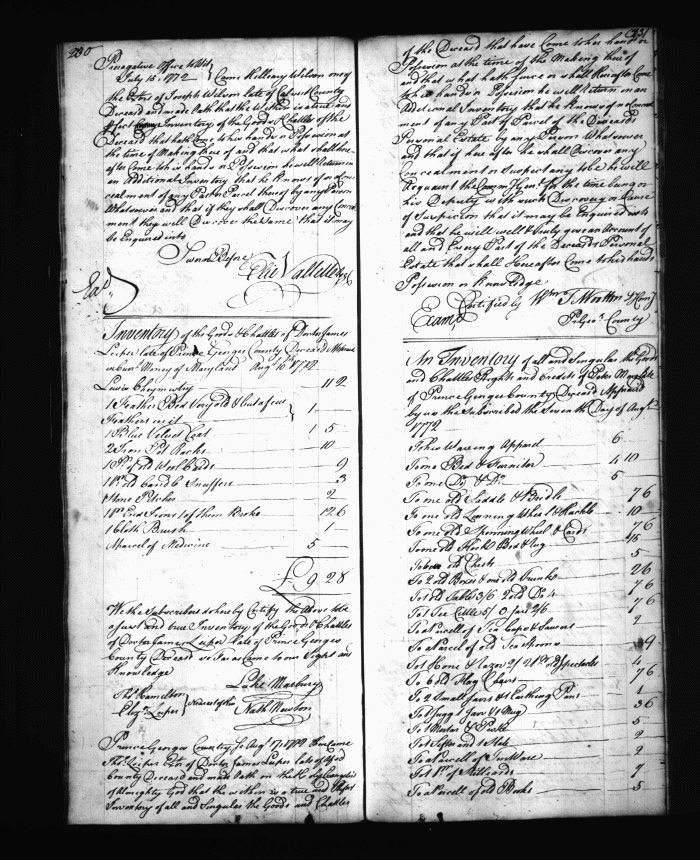 230
Prerogative Office to Wit
July 15: 1772 } Came Killeary Wilson one of
the Extors of Joseph Wilson late of Calvert County
Deceased and made Oath that the Within is a true and
perfect Inventory of the Goods & Chattles of the
Deceased that hath Come to her hands or Possession at
the time of Making thereof and that what shall here=
after Come to his hands or Possession he will Return in
an Additional Inventory that he Knows of no Conc
cealment of any Part or Parcel thereof by any Person
Whatsoever and that if they shall Discover any Conceal
ment they will Discover the same that it may
be Enquired into
Sworn Before
Elie Vallette
Exd
Inventory of the Goods & Chattles of Doctor James
Leiper late of Prince Georges County Deceased
in Curr. Money of Maryland Augt 10th 1772
11 2
1 Feather Bed Very old &
Feathers in it } 1 —
1 Blue Velvet Coat 1 5
2 Iron Pot Racks — 10 —
10 Pr. of old Wool Cards 9
1 Pr. old Candle Snuffers 3
1 Stone Pitcher 2 —
1 Pr. End Irons 1 of them Broke 12 6
1 Cloth Brush 1 —
Parcel of Medicine 5 —
£ 9. 2 8
We the Subscribers do hereby Certify the Above to be
a Just and true Inventory of the Goods & Chattles
of Doctor James Leiper late of Prince Georges
County Deceast so far as Came to our Sight and
Knowledge
Luke Marbury
Thos. Hamilton
Elizth Leiper } Nearest of Kin
Nath Newton
Prince Georges County, Sc Augt 17: 1772 then Came
Thos. Leiper Extor of Doctor James Leiper late of said
County Deceased and made Oath on the Holy Evangels
of Almighty God that the within is a true and perfect
Inventory of all and Singular the Goods and Chattles
231
of the Deceased that have Come to her hands or
Possession at the time of the Making thereof
and that what hath since or shall hereafter Come
to his hands or Possession he will Return in an
Additional Inventory that he Knows of no Conceal
ment of any Part or Parcel of the Deceaseds
Personal Estate by any Person Whatsoever
and that if hereafter he shall Discover any
Concealment or Suspect any to be he will
Acquaint the Commissary Genl. for the time being or
his Deputy with such Discovery or Cause
of Suspicion that it may be Enquired into
and that he will well & truly give an Account of
all and Every Part of the Deceaseds Personal
Estate that shall hereafter Come to his hands
Possession or Knowledge
Certified by Wm. T. Wootton
Examd County
An Inventory of all and Singular the Goods
and Chattles Rights and Credits of Peter
of Prince Georges County Deceased Appraised
by us the Subscribers the Seventh Day of Augt
1772
To his Wareing Apparel 6
To one Bed & Furniture 4 10
To one Do. & Do. 5 —
To one old Saddle & Bridle 7 6
To one old Linning Wheel & Hackle 10 —
To one old Spinning Wheel & Cards 7 6
To one old Flock Bed & Rug 4
To two old Chests 5
To 2 old Boxes & one old Trunk 2 6
To 1 old Table 3/6 2 old Do. 4 7 6
To 1 Tea Kettle 5/ 7 6
To a Parcell of Tea Cups & Sawcers 2
To a Parcel of old Tea Spoons 9
To 1 Hone & Razor 2/ 2 Pr old Spectacles 4
To 6 old Flag Chairs 7 6
To 2 Small Jarrs & 1 Earthing Pan 1
To 1 Jugg 1 Jarr & 1 Mug 3 6
To 1 Mortar & Pestle 5
To 1 Sifter and 1 Slate 2
To a Parcell of 2
To 1 Pr. of Stilliards 7
To a Parcell of old Books 5